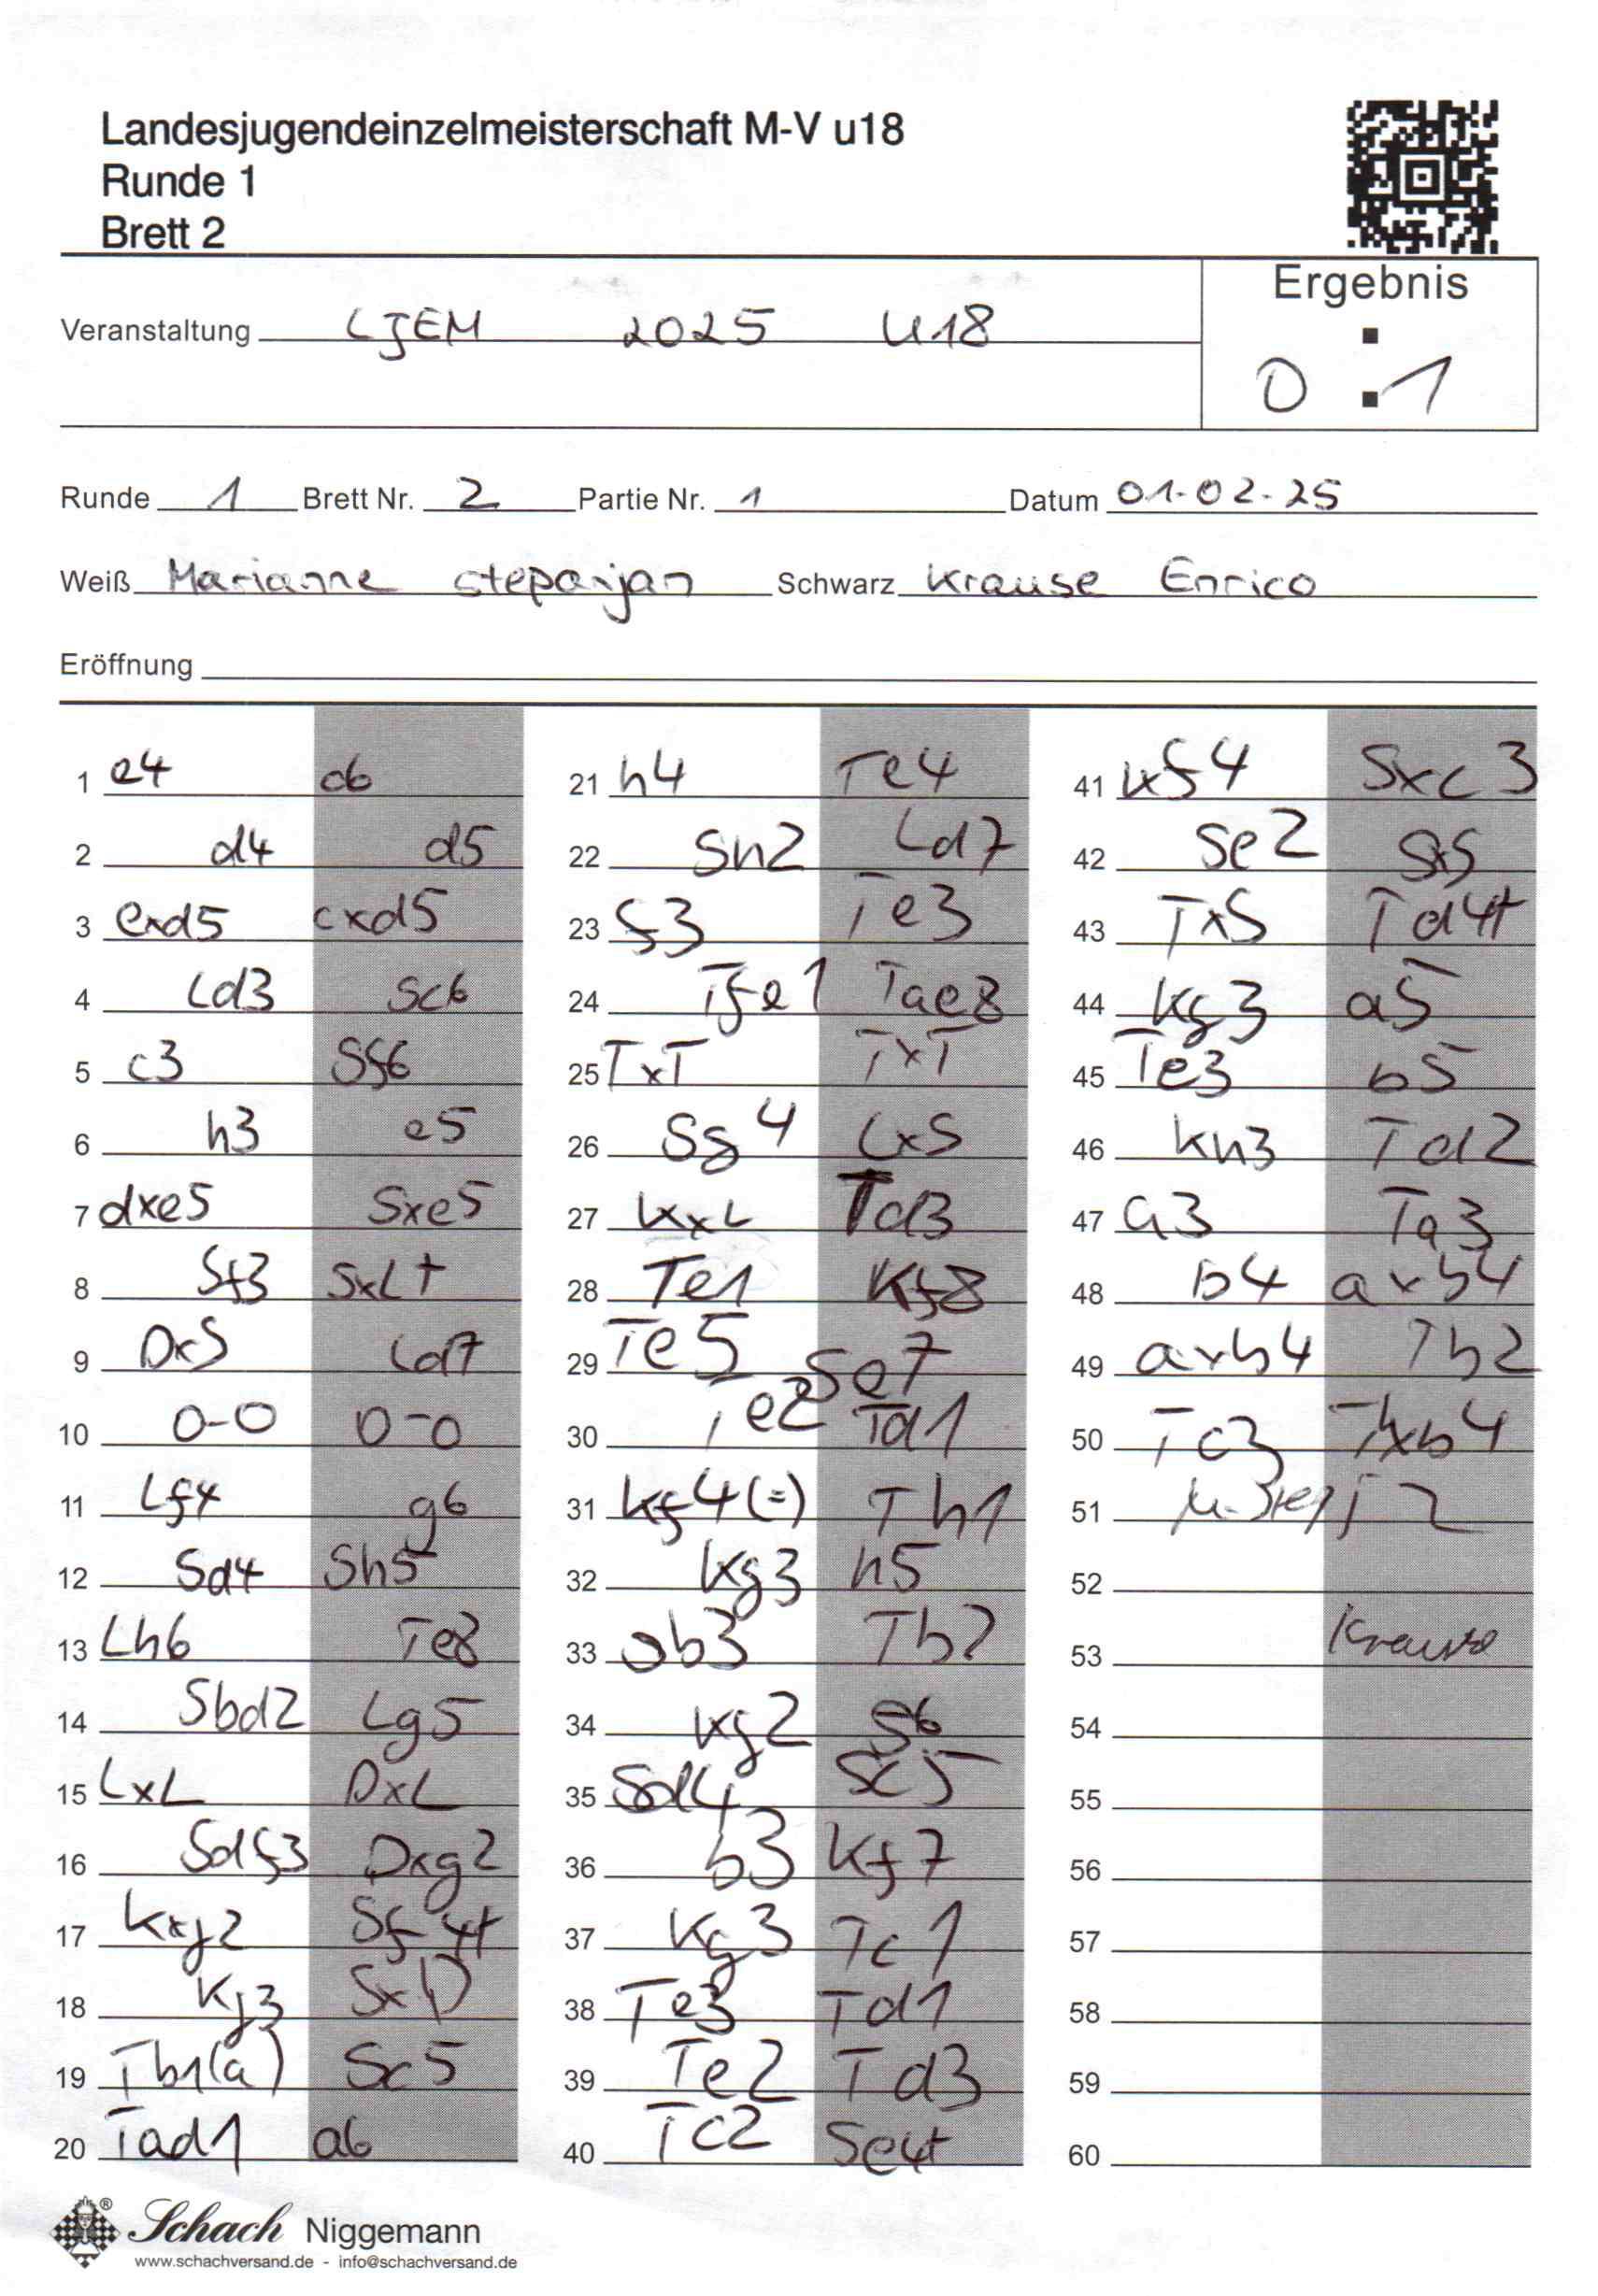 Landesjugendeinzelmeisterschaft M-V u18
Runde 1
Brett 2
Ergebnis
Veranstaltung LJEM 2025 U18
0 : 1
Runde 1 Brett Nr. 2 Partie Nr. 1 Datum 01.02.25
Weiß Marianne Stepanjan Schwarz Krause Enrico
Eröffnung
1 e4 c6
2 d4 d5
3 exd5 cxd5
4 Ld3 Sc6
5 c3 Sf6
6 h3 e5
7 dxe5 Sxe5
8 Sf3 SxL+
9 DxS Ld7
10 0-0 0-0
11 Lf4 g6
12 Sd4 Sh5
13 Lh6 Te8
14 Sbd2 Lg5
15 LxL DxL
16 Sdf3 Dxg2
17 Kxg2 Sf4+
18 Kg3 SxD
19 Tb1(a) Sc5
20 Tad1 a6
21 h4 Te4
22 Sh2 Ld7
23 f3 Te3
24 Tfe1 Tae8
25 TxT TxT
26 Sg4 LxS
27 KxL Td3
28 Te1 Kf8
29 Te5 Se7
30 Te2 Td1
31 Kf4(=) Th1
32 Kg3 h5
33 Sb3 Tb1
34 Kg2 f6
35 Sd4 Sc5
36 b3 Kf7
37 Kg3 Tc1
38 Te3 Td1
39 Te2 Td3
40 Tc2 Se4+
41 Kf4 Sxc3
42 Se2 SxS
43 TxS Td4+
44 Kg3 a5
45 Te3 b5
46 Kh3 Td2
47 a3 Ta3
48 b4 axb4
49 axb4 Tb2
50 Tc3 Txb4
51
52
53 Krause
54
55
56
57
58
59
60
Schach Niggemann
www.schachversand.de - info@schachversand.de